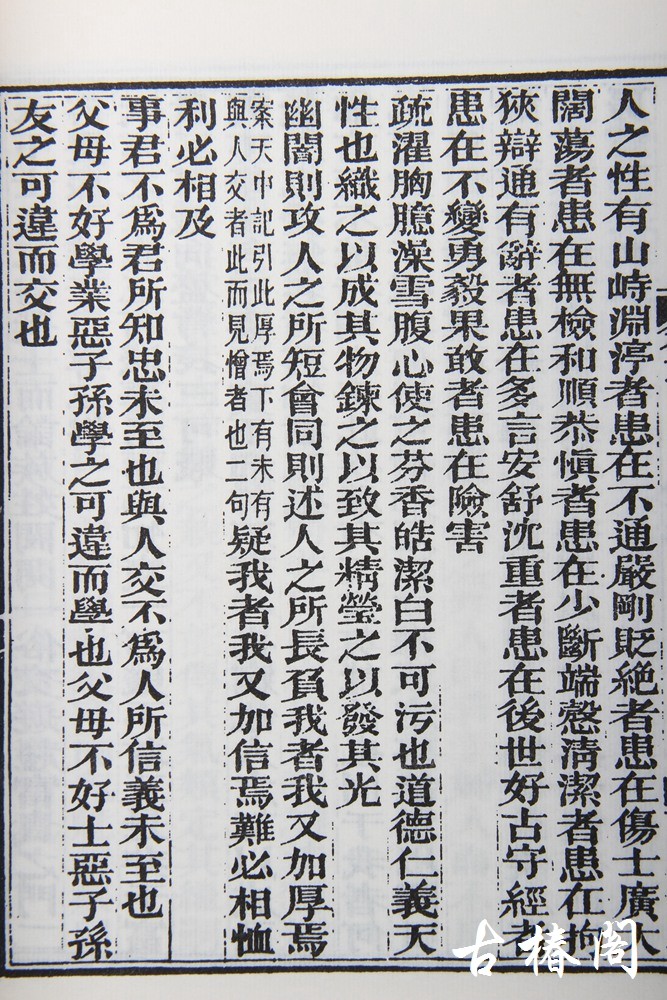 人之性有山峙淵渟者患在不通嚴剛貶絶者患在傷士廣大
闊蕩者患在無檢和順恭愼者患在少斷端愨清潔者患在拘
狹辯通有辭者患在多言安舒沈重者患在後世好古守經者
患在不變勇毅果敢者患在險害
疏濯胸臆澡雪腹心使之芬香皓潔白不可污也道德仁義天
性也織之以成其物鍊之以致其精瑩之以發其光
幽闇則攻人之所短會同則述人之所長負我者我又加厚焉
案天中記引此厚焉下有未有
與人交者此而見憎者也一句
疑我者我又加信焉難必相恤
利必相及
事君不爲君所知忠未至也與人交不爲人所信義未至也
父母不好學業惡子孫學之可違而學也父母不好士惡子孫
友之可違而交也
古椿閣